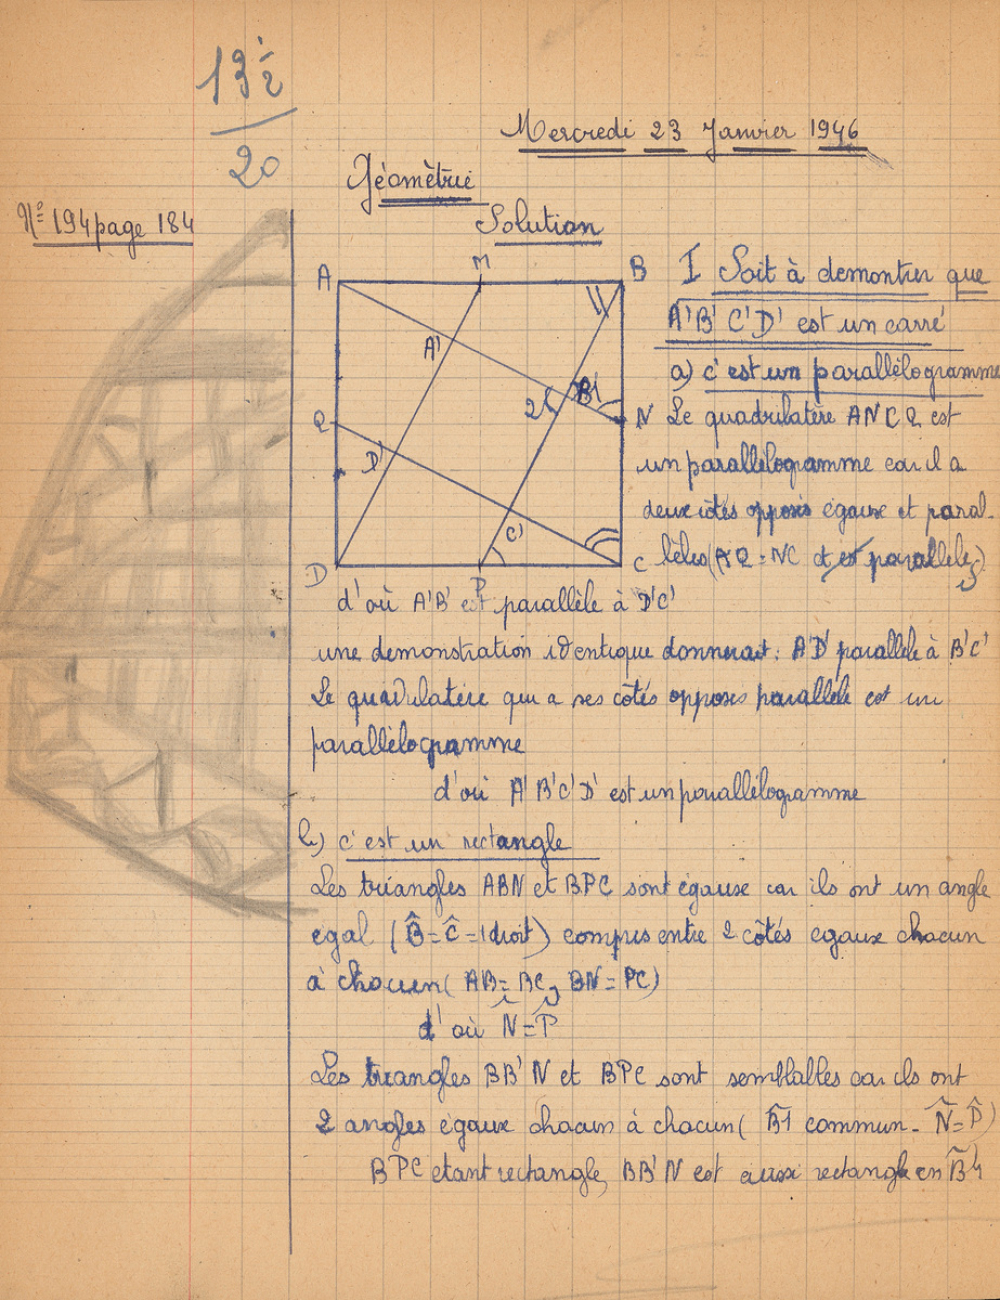 13 1/2
20
Mercredi 23 Janvier 1946
Géomètrie
N° 194 page 184
Solution
A M B
A' B' 2 1
Q N
D' C'
D P C
I Soit à demontrer que
A'B'C'D' est un carré
a) c'est un parallèlogramme
Le quadrilatère ANCQ est
un parallèlogramme car il a
deux côtés opposés égaux et paral-
lèles (AQ = NC et est parallèles)
d'où A'B' est parallèle à D'C'
une demonstration identique donnerait : A'D' parallèle à B'C'
Le quadrilatère qui a ses côtés opposés parallèle est un
parallèlogramme
d'où A'B'C'D' est un parallèlogramme
b) c'est un rectangle
Les triangles ABN et BPC sont égaux car ils ont un angle
egal (B̂ = Ĉ = 1 droit) compris entre 2 côtés egaux chacun
à chacun ( AB = BC, BN = PC)
d'où N̂ = P̂
Les triangles BB'N et BPC sont semblables car ils ont
2 angles égaux chacun à chacun ( B̂1 commun - N̂ = P̂ )
BPC etant rectangle, BB'N est aussi rectangle en B̂'1